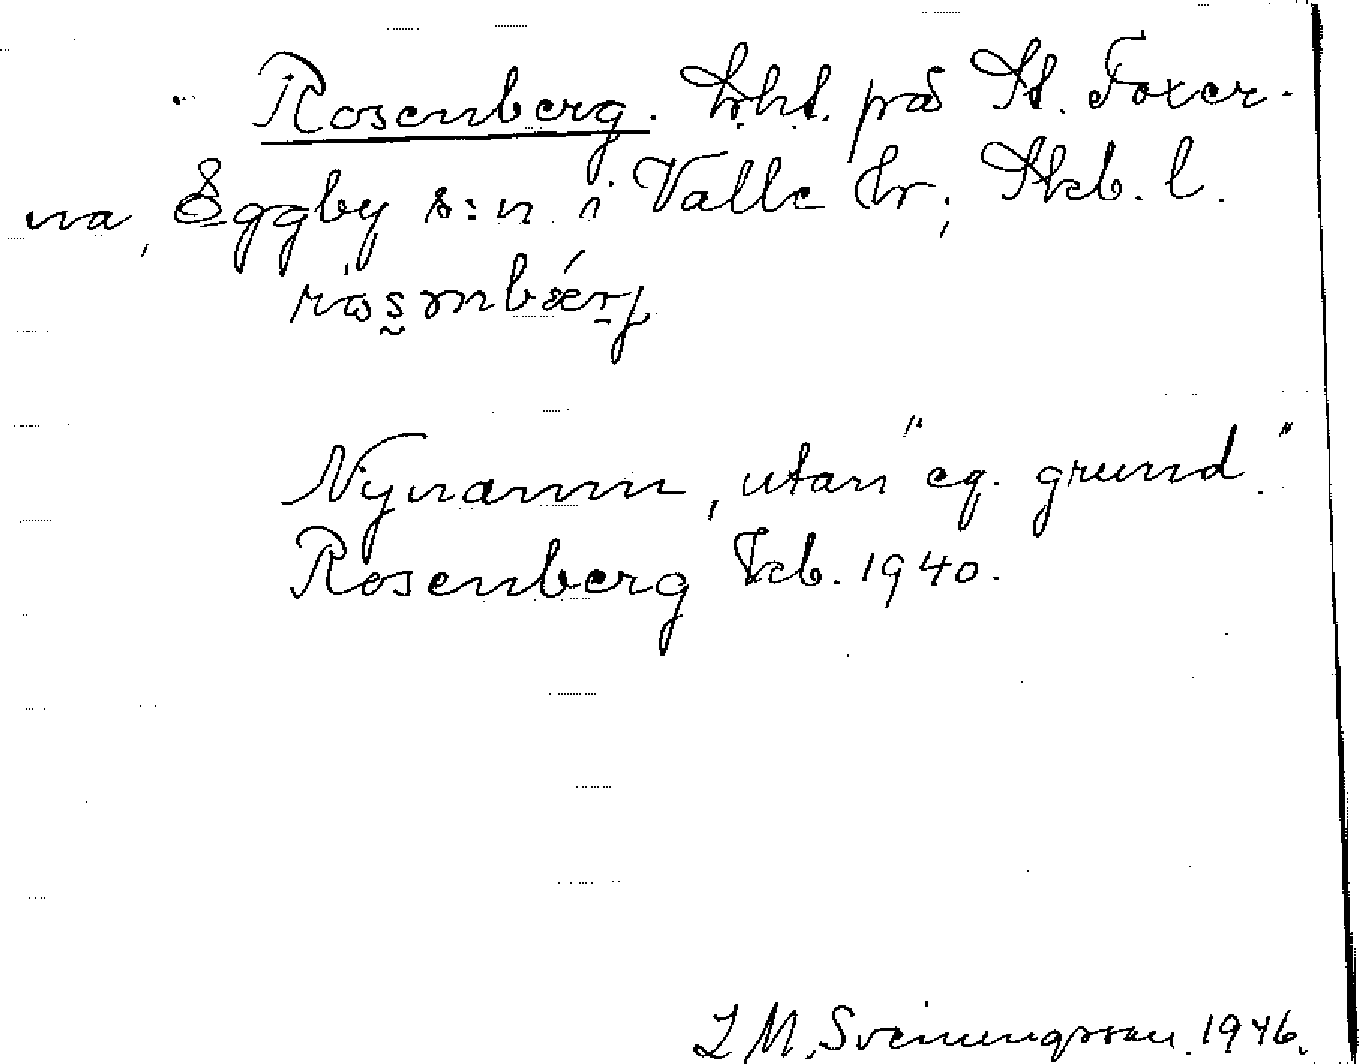 Rosenberg. Lht. på St. Foxer-
na, Eggby s:n i Valle hr; Skb. l.
Nynamn, utan "eg. grund."
Rosenberg Kcb. 1940.
I M, Sveningsson. 1946.